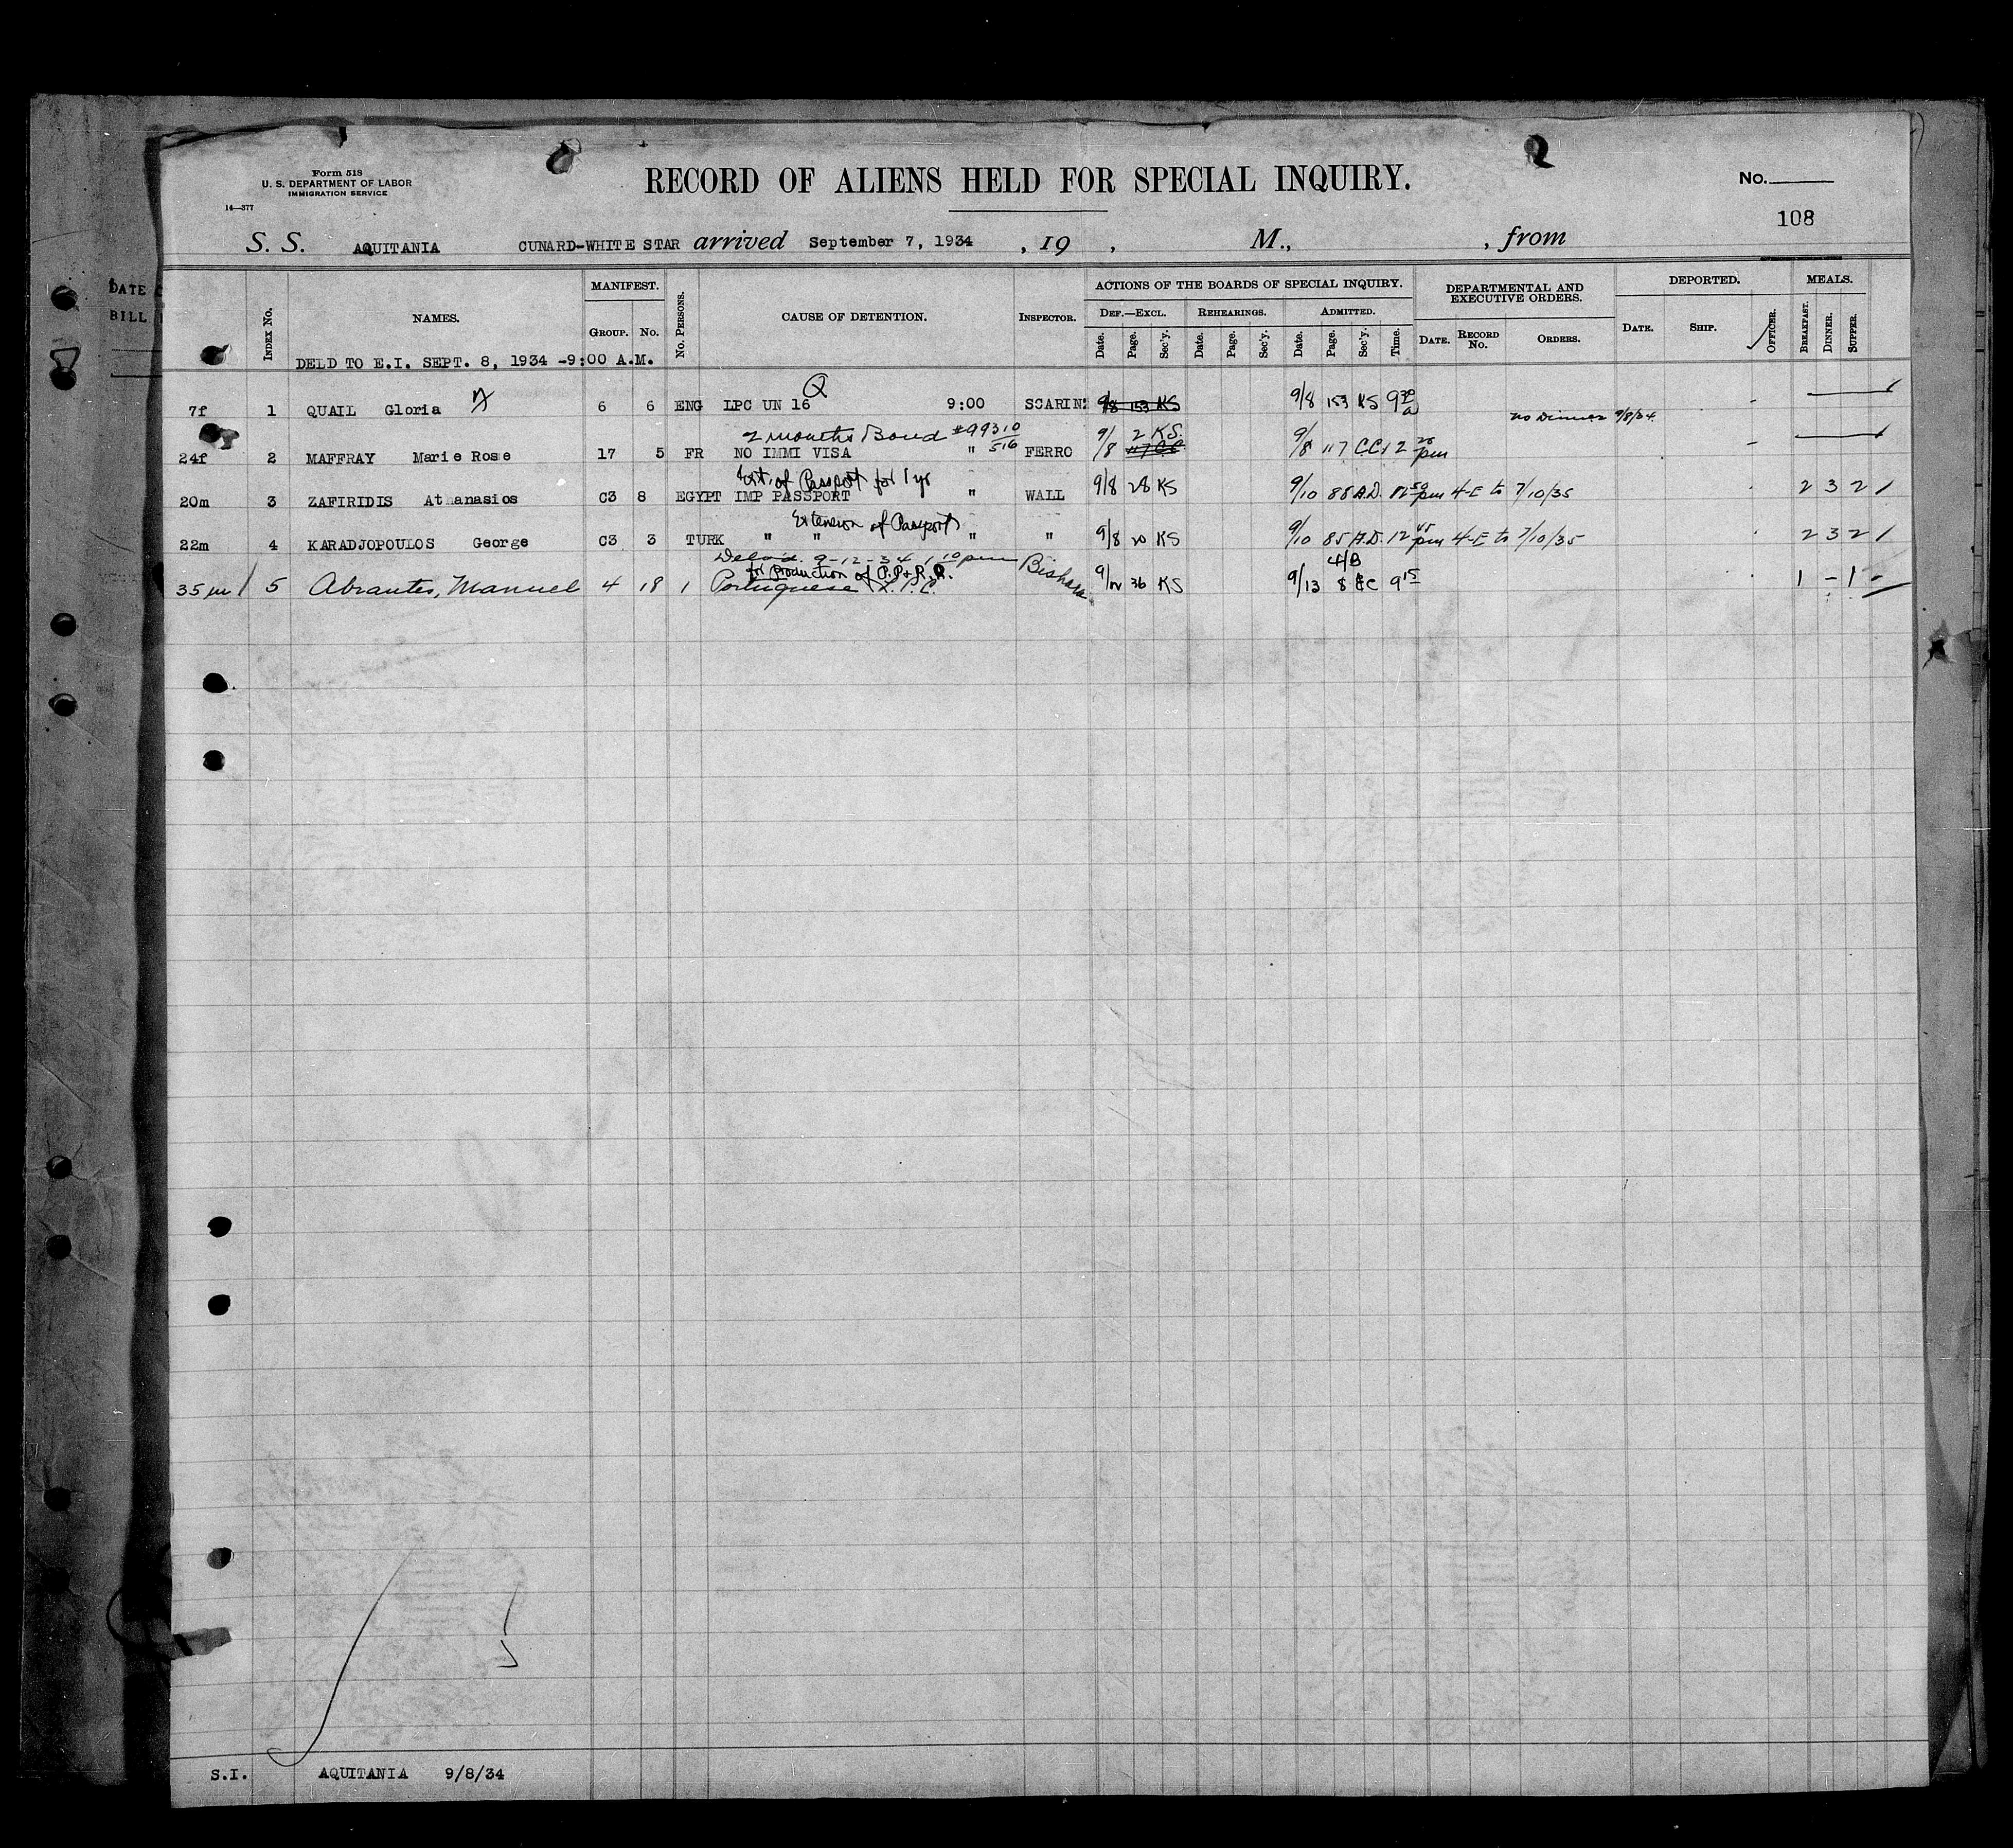 Form 518
U. S. DEPARTMENT OF LABOR
IMMIGRATION SERVICE
14—377
RECORD OF ALIENS HELD FOR SPECIAL INQUIRY.
No.
108
S. S. AQUITANIA CUNARD-WHITE STAR arrived September 7, 1934 , 19 , M., , from
DATE
BILL
INDEX No. NAMES. MANIFEST. GROUP. No. No. PERSONS. CAUSE OF DETENTION. INSPECTOR. ACTIONS OF THE BOARDS OF SPECIAL INQUIRY. DEPARTMENTAL AND EXECUTIVE ORDERS. DEPORTED. MEALS.
DEF.—EXCL. REHEARINGS. ADMITTED.
Date. Page. Sec'y. Date. Page. Sec'y. Date. Page. Sec'y. Time. DATE. RECORD No. ORDERS. DATE. SHIP. OFFICER. BREAKFAST. DINNER. SUPPER.
DELD TO E.I. SEPT. 8, 1934 -9:00 A.M.
Q
7f 1 QUAIL Gloria X 6 6 ENG LPC UN 16 9:00 SCARIN 9/8 153 KS 9/8 153 KS 9 30 a -
no Dinner 9/8/34
2 months Bond #99310/516
24f 2 MAFFRAY Marie Rose 17 5 FR NO IMMI VISA " FERRO 9/8 2 KS. 117 CC 9/8 117 CC 12 20 pm -
Ext. of Passport for 1 yr
20m 3 ZAFIRIDIS Athanasios C3 8 EGYPT IMP PASSPORT " WALL 9/8 28 KS 9/10 88 A.D. 12 50 pm 4-E to 7/10/35 2 3 2 /
Extension of Passport
22m 4 KARADJOPOULOS George C3 3 TURK " " " " 9/8 20 KS 9/10 85 A.D. 12 45 pm 4-E to 7/10/35 2 3 2 /
9-12-34 1 10 pm
for production of P.P. & R.R. 4/B
35 m 5 Abrantes, Manuel 4 18 1 Portuguese L.P.C. Bishara 9/12 36 KS 9/13 8 CC 9 15 1 - 1 -
S.I. AQUITANIA 9/8/34